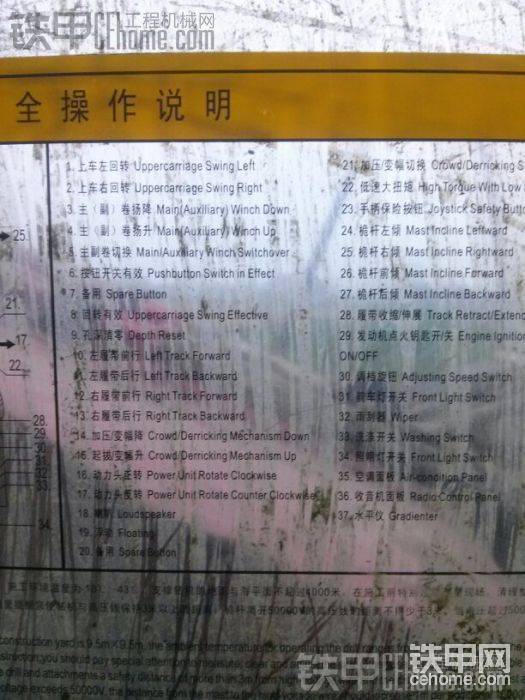 铁甲 工程机械网
Cehome.com
全操作说明
1. 上车左回转 Uppercarriage Swing Left
2. 上车右回转 Uppercarriage Swing Right
3. 主（副）卷扬降 Main(Auxiliary) Winch Down
4. 主（副）卷扬升 Main(Auxiliary) Winch Up
5. 主副卷切换 Main/Auxiliary Winch Switchover
6. 按钮开关有效 Pushbutton Switch in Effect
7. 备用 Spare Button
8. 回转有效 Uppercarriage Swing Effective
9. 孔深清零 Depth Reset
10. 左履带前行 Left Track Forward
11. 左履带后行 Left Track Backward
12. 右履带前行 Right Track Forward
13. 右履带后行 Right Track Backward
14. 加压/变幅降 Crowd/Derricking Mechanism Down
15. 起拔/变幅升 Crowd/Derricking Mechanism Up
16. 动力头正转 Power Unit Rotate Clockwise
17. 动力头反转 Power Unit Rotate Counter Clockwise
18. 喇叭 Loudspeaker
19. 浮动 Floating
20. 备用 Spare Button
21. 加压/变幅切换 Crowd/Derricking S
22. 低速大扭矩 High Torque With Low
23. 手柄保险按钮 Joystick Safety Butto
24. 桅杆左倾 Mast Incline Leftward
25. 桅杆右倾 Mast Incline Rightward
26. 桅杆前倾 Mast Incline Forward
27. 桅杆后倾 Mast Incline Backward
28. 履带收缩/伸展 Track Retract/Extend
29. 发动机点火钥匙开/关 Engine Ignition
ON/OFF
30. 调档旋钮 Adjusting Speed Switch
31. 前车灯开关 Front Light Switch
32. 雨刮器 Wiper
33. 洗涤开关 Washing Switch
34. 照明灯开关 Front Light Switch
35. 空调面板 Air-condition Panel
36. 收音机面板 Radio Control Panel
37. 水平仪 Gradienter
25.
21.
17.
22.
28.
29.
30.
31.
32.
33.
34.
construction yard is 9.5m×9.5m, the ambient temperature for operating the drill ranges from
struction,you should pay special attention to
e drill and attachments a safety distance of more than 3m from high
voltage exceeds 50000V, the distance from the mast to
铁甲
铁甲网
cehome.com